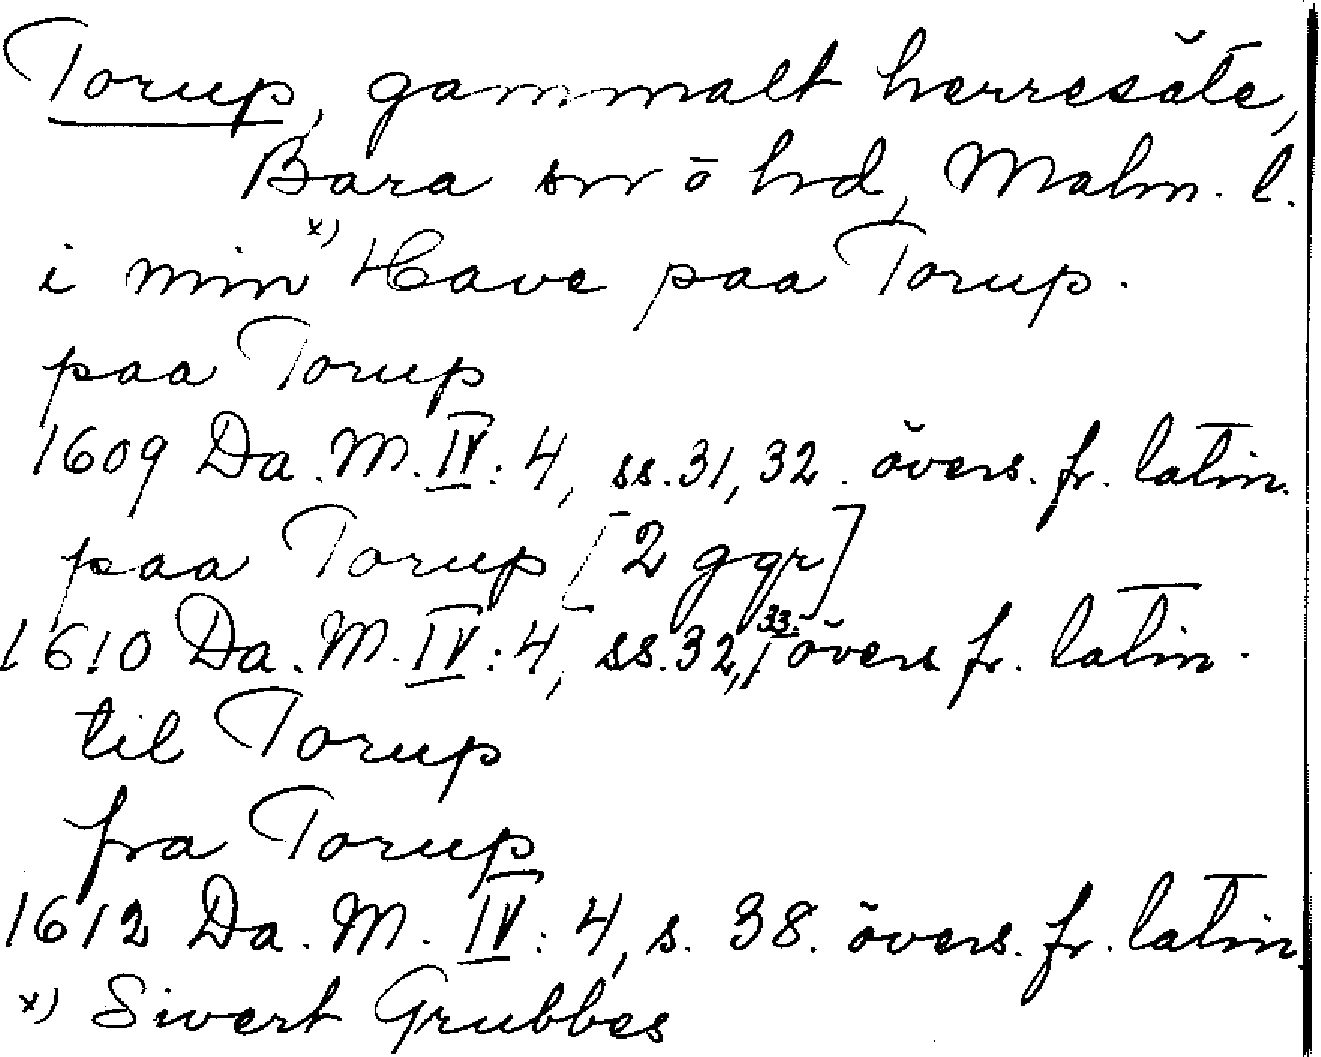 Torup, gammalt herresäte,
Bara sn o hd, Malm. l.
i min x) Have paa Torup.
paa Torup
1609 Da. M. IV: 4, ss. 31, 32. övers. fr. latin.
paa Torup [2 ggr]
1610 Da. M. IV: 4, ss. 32, 33. övers fr. latin.
til Torup
fra Torup
1612 Da. M. IV: 4, s. 38. övers. fr. latin.
x) Sivert Grubbes